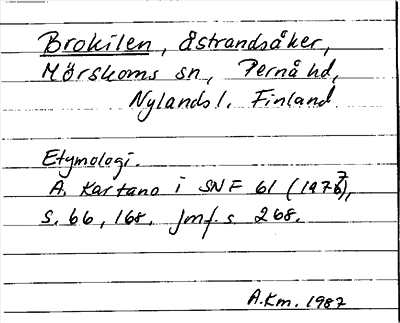 Brokilen, åstrandsåker,
Mörskoms sn, Pernå hd,
Nylands l. Finland.
Etymologi.
A. Kartano i SNF 61 (1977),
s. 66, 168. Jmf. s 268.
A.Km. 1987